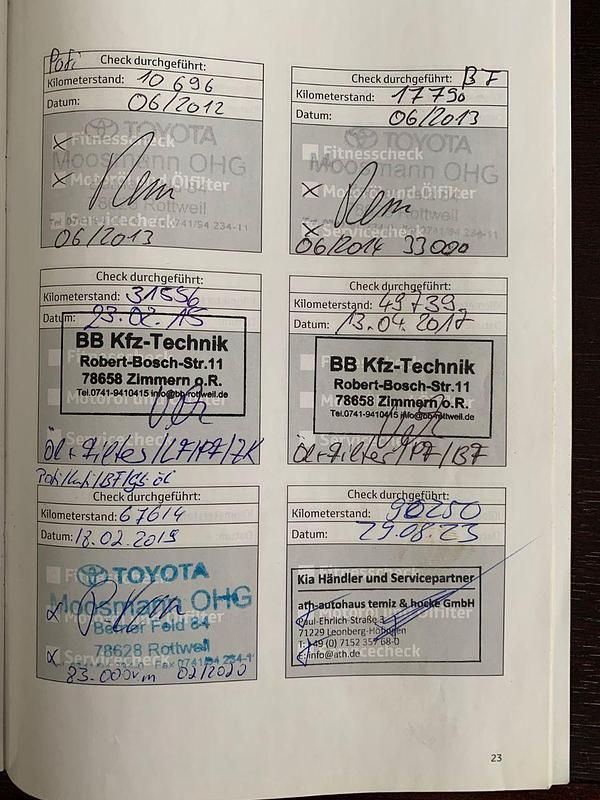 Pofi Check durchgeführt:
Kilometerstand: 10 696
Datum: 06/2012
Fitnesscheck
TOYOTA
Moosmann OHG
Motoröl und Ölfilter
Rottweil
Servicecheck
06/2013
Check durchgeführt: BF
Kilometerstand: 17790
Datum: 06/2013
Fitnesscheck
TOYOTA
Moosmann OHG
Motoröl und Ölfilter
Rottweil
Servicecheck
06/2014 33000
Check durchgeführt:
Kilometerstand: 31556
Datum: 23.02.15
BB Kfz-Technik
Robert-Bosch-Str.11
78658 Zimmern o.R.
Tel.0741-9410415 info@bb-rottweil.de
Servicecheck
Öl + Filter/LF/PF/ZK
Check durchgeführt:
Kilometerstand: 49739
Datum: 13.04.2017
BB Kfz-Technik
Robert-Bosch-Str.11
78658 Zimmern o.R.
Tel.0741-9410415 info@bb-rottweil.de
Servicecheck
Öl + Filter/PF/BF
Check durchgeführt:
Kilometerstand: 67614
Datum: 18.02.2019
TOYOTA
Moosmann OHG
Berner Feld 84
78628 Rottweil
Servicecheck
83.000 km 02/2020
Check durchgeführt:
Kilometerstand: 90250
Datum: 29.08.23
Kia Händler und Servicepartner
ath-autohaus temiz & hocke GmbH
Paul-Ehrlich-Straße
71229 Leonberg-Höfingen
T: +49 (0) 7152 357 68-0
E: info@ath.de
Servicecheck
23